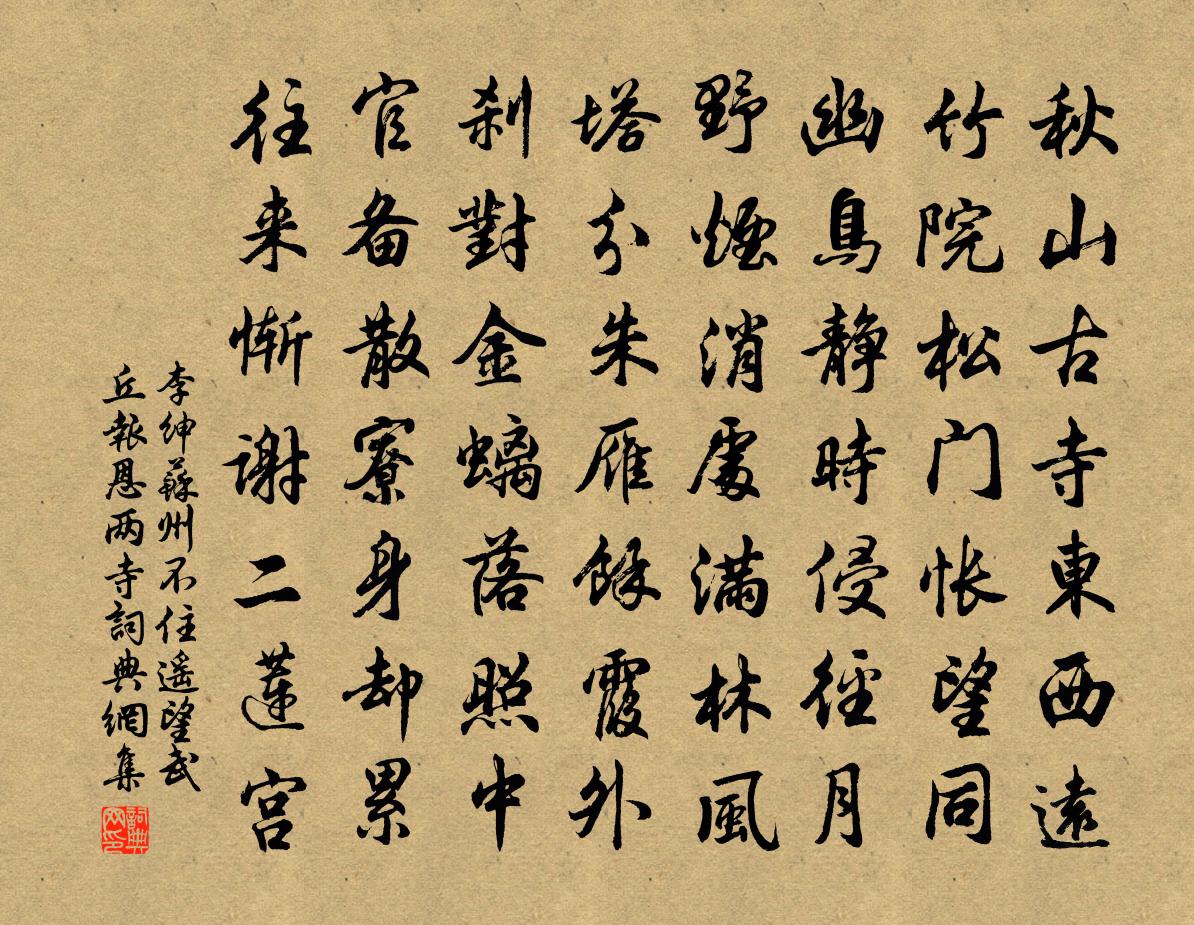 秋山古寺東西遠
竹院松门怅望同
幽鳥静時侵徑月
野煙消處滿林風
塔分朱雁餘霞外
刹對金螭落照中
官备散寮身却累
往来惭谢二莲宫
李绅蘇州不住遥望武
丘報恩两寺詞典網集
詞典网印